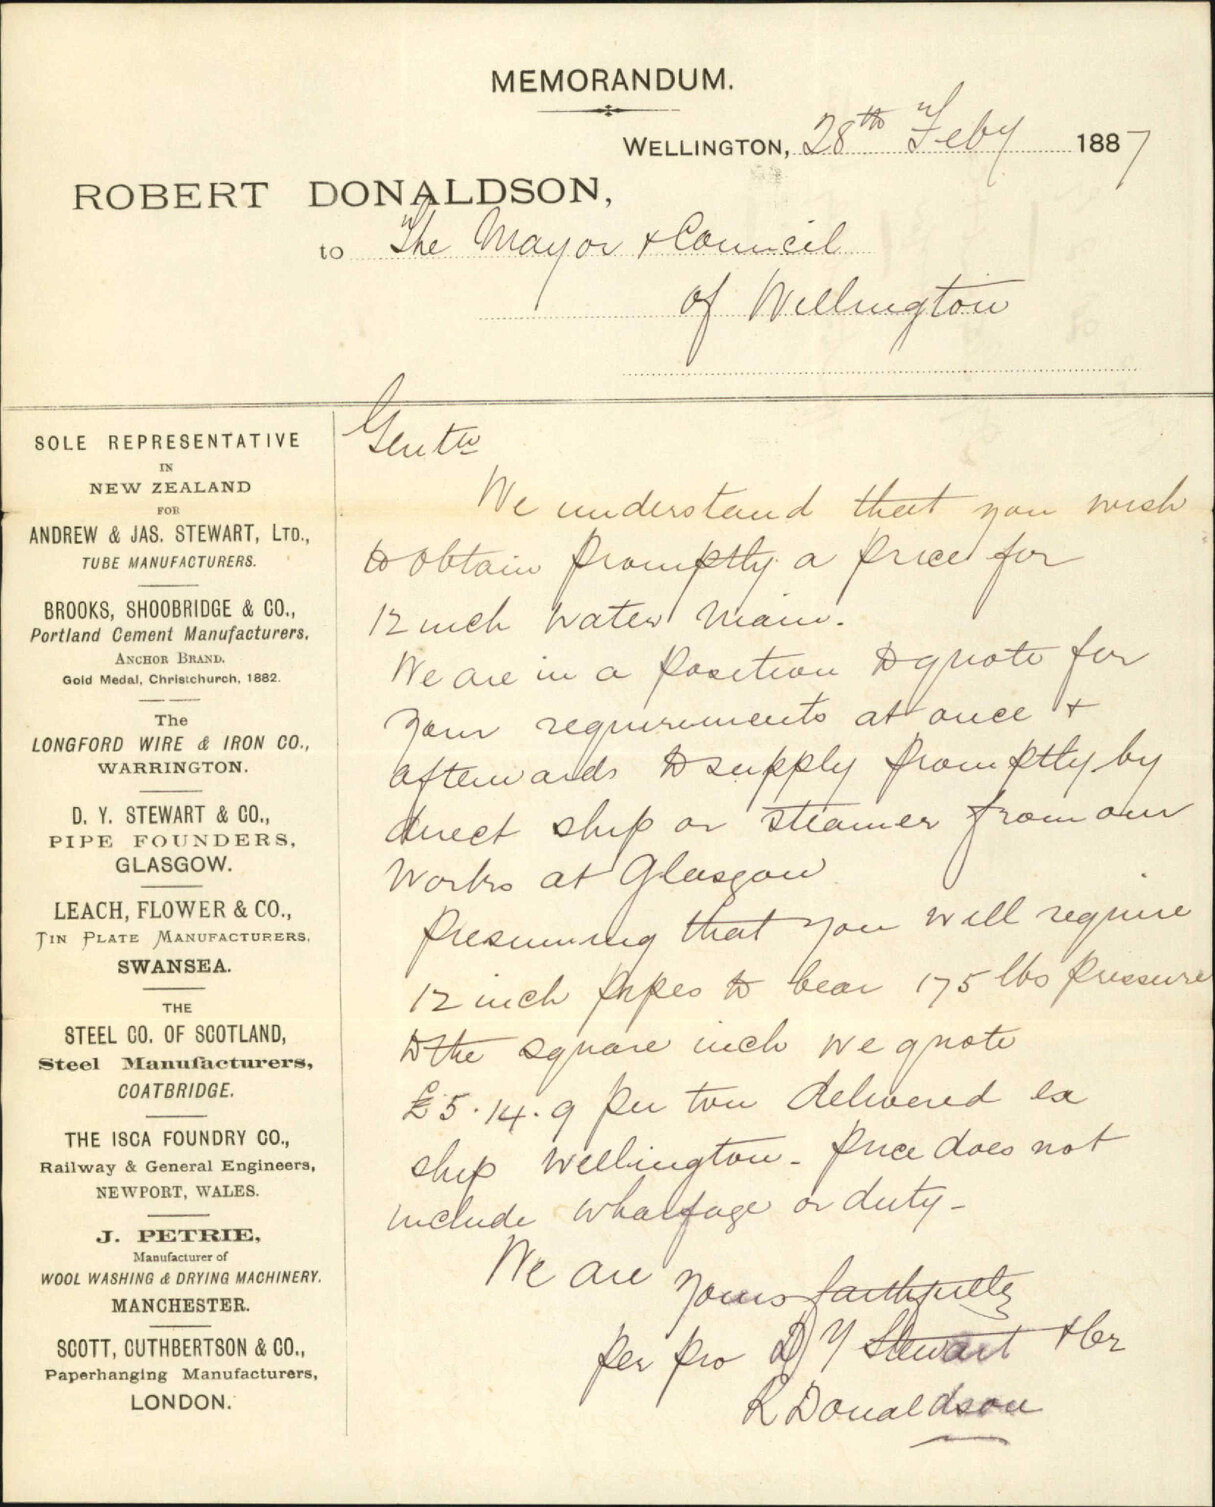 MEMORANDUM.
WELLINGTON, 28th Feby 1887
ROBERT DONALDSON,
to The Mayor & Council
of Wellington
SOLE REPRESENTATIVE
IN
NEW ZEALAND
FOR
ANDREW & JAS. STEWART, LTD.,
TUBE MANUFACTURERS.
BROOKS, SHOOBRIDGE & CO.,
Portland Cement Manufacturers,
ANCHOR BRAND.
Gold Medal, Christchurch, 1882.
The
LONGFORD WIRE & IRON CO.,
WARRINGTON.
D. Y. STEWART & CO.,
PIPE FOUNDERS,
GLASGOW.
LEACH, FLOWER & CO.,
TIN PLATE MANUFACTURERS,
SWANSEA.
THE
STEEL CO. OF SCOTLAND,
Steel Manufacturers,
COATBRIDGE.
THE ISCA FOUNDRY CO.,
Railway & General Engineers,
NEWPORT, WALES.
J. PETRIE,
Manufacturer of
WOOL WASHING & DRYING MACHINERY.
MANCHESTER.
SCOTT, CUTHBERTSON & CO.,
Paperhanging Manufacturers,
LONDON.
Gentn
We understand that you wish
to obtain promptly a price for
12 inch water main.
We are in a position to quote for
your requirements at once &
afterwards to supply promptly by
direct ship or steamer from our
works at Glasgow
Presuming that you will require
12 inch pipes to bear 175 lbs pressure
to the square inch we quote
£5.14.9 per ton delivered ex
ship Wellington - Price does not
include wharfage or duty -
We are
yours faithfully
per pro D Y Stewart & Co
R Donaldson